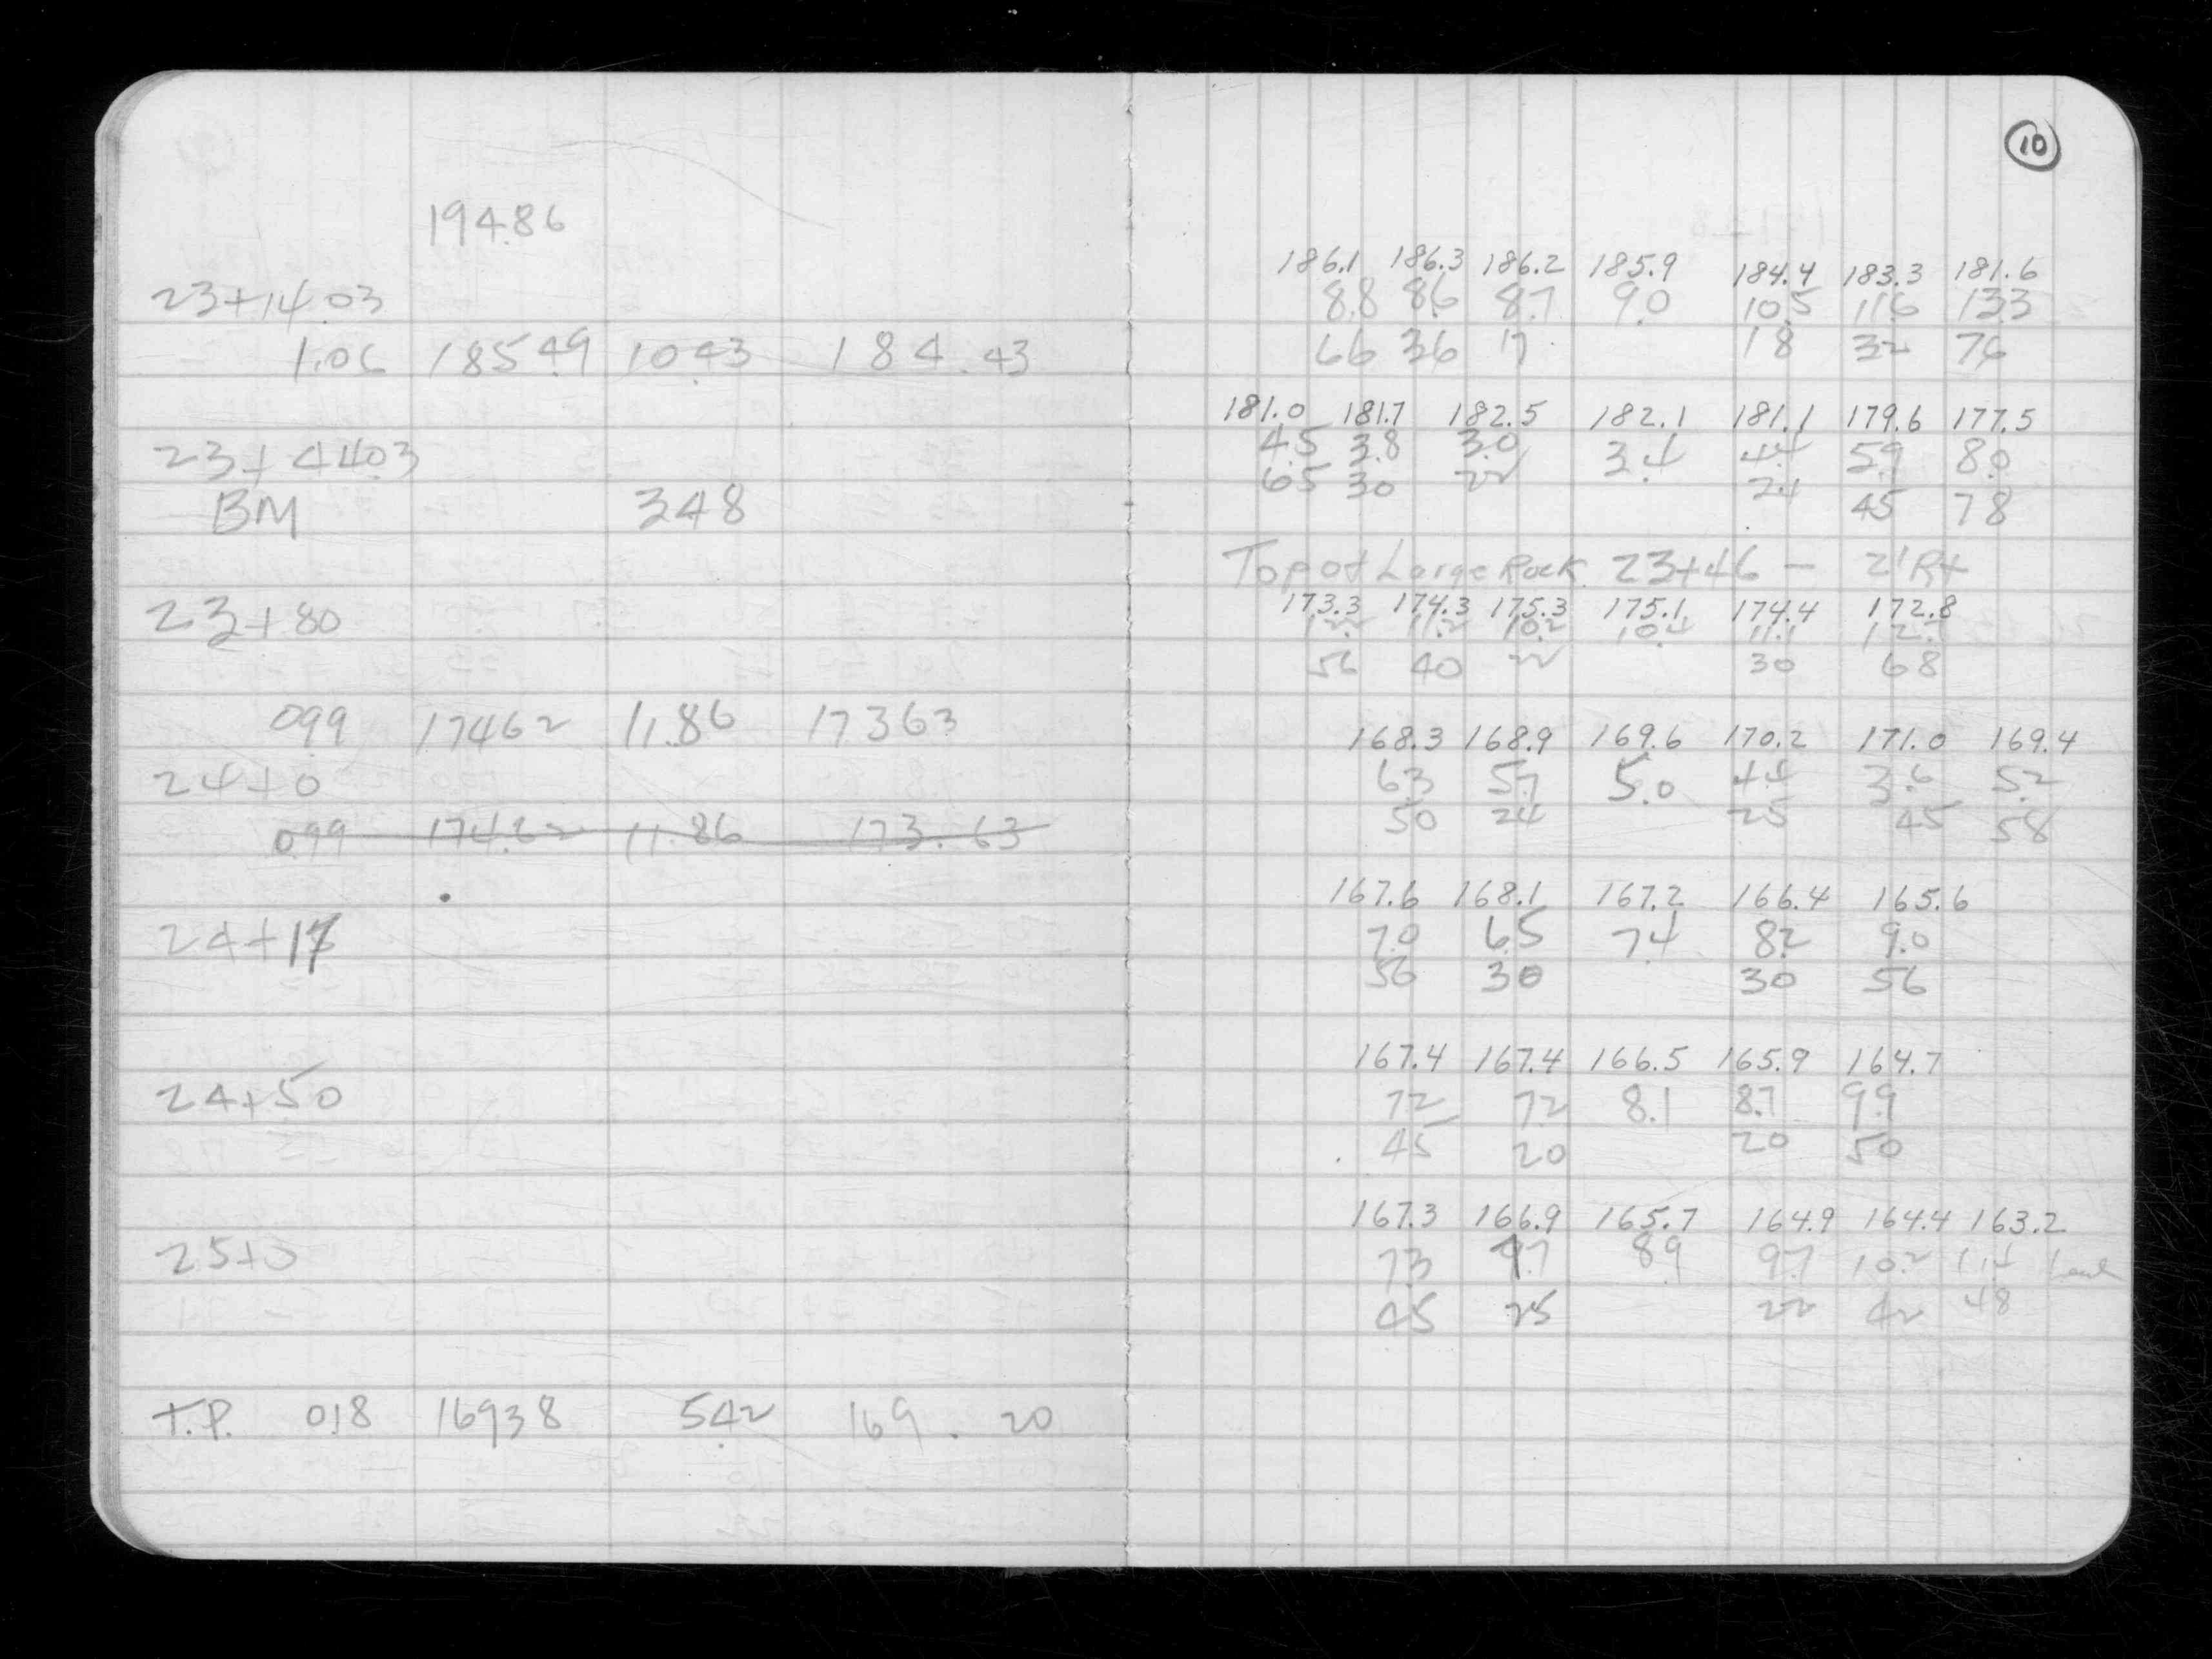 10
194.86
23+14.03
1.06 185.49 10.43 184.43
23+44.03
BM 3.48
23+80
0.99 174.62 11.86 173.63
24+0
0.99 174.62 11.86 173.63
24+17
24+50
25+0
T.P. 0.18 169.38 5.42 169.20
186.1 186.3 186.2 185.9 184.4 183.3 181.6
8.8 8.6 8.7 9.0 10.5 11.6 13.3
66 36 17 18 32 76
181.0 181.7 182.5 182.1 181.1 179.6 177.5
4.5 3.8 3.0 3.4 4.4 5.9 8.0
65 30 22 24 45 78
Top of Large Rock 23+46 - 21' Rt
173.3 174.3 175.3 175.1 174.4 172.8
12.2 11.2 10.2 10.4 11.1 12.7
56 40 22 30 68
168.3 168.9 169.6 170.2 171.0 169.4
6.3 5.7 5.0 4.4 3.6 5.2
50 24 25 45 58
167.6 168.1 167.2 166.4 165.6
7.0 6.5 7.4 8.2 9.0
56 30 30 56
167.4 167.4 166.5 165.9 164.7
7.2 7.2 8.1 8.7 9.9
45 20 20 50
167.3 166.9 165.7 164.9 164.4 163.2
7.3 7.7 8.9 9.7 10.2 11.4
45 25 22 42 48